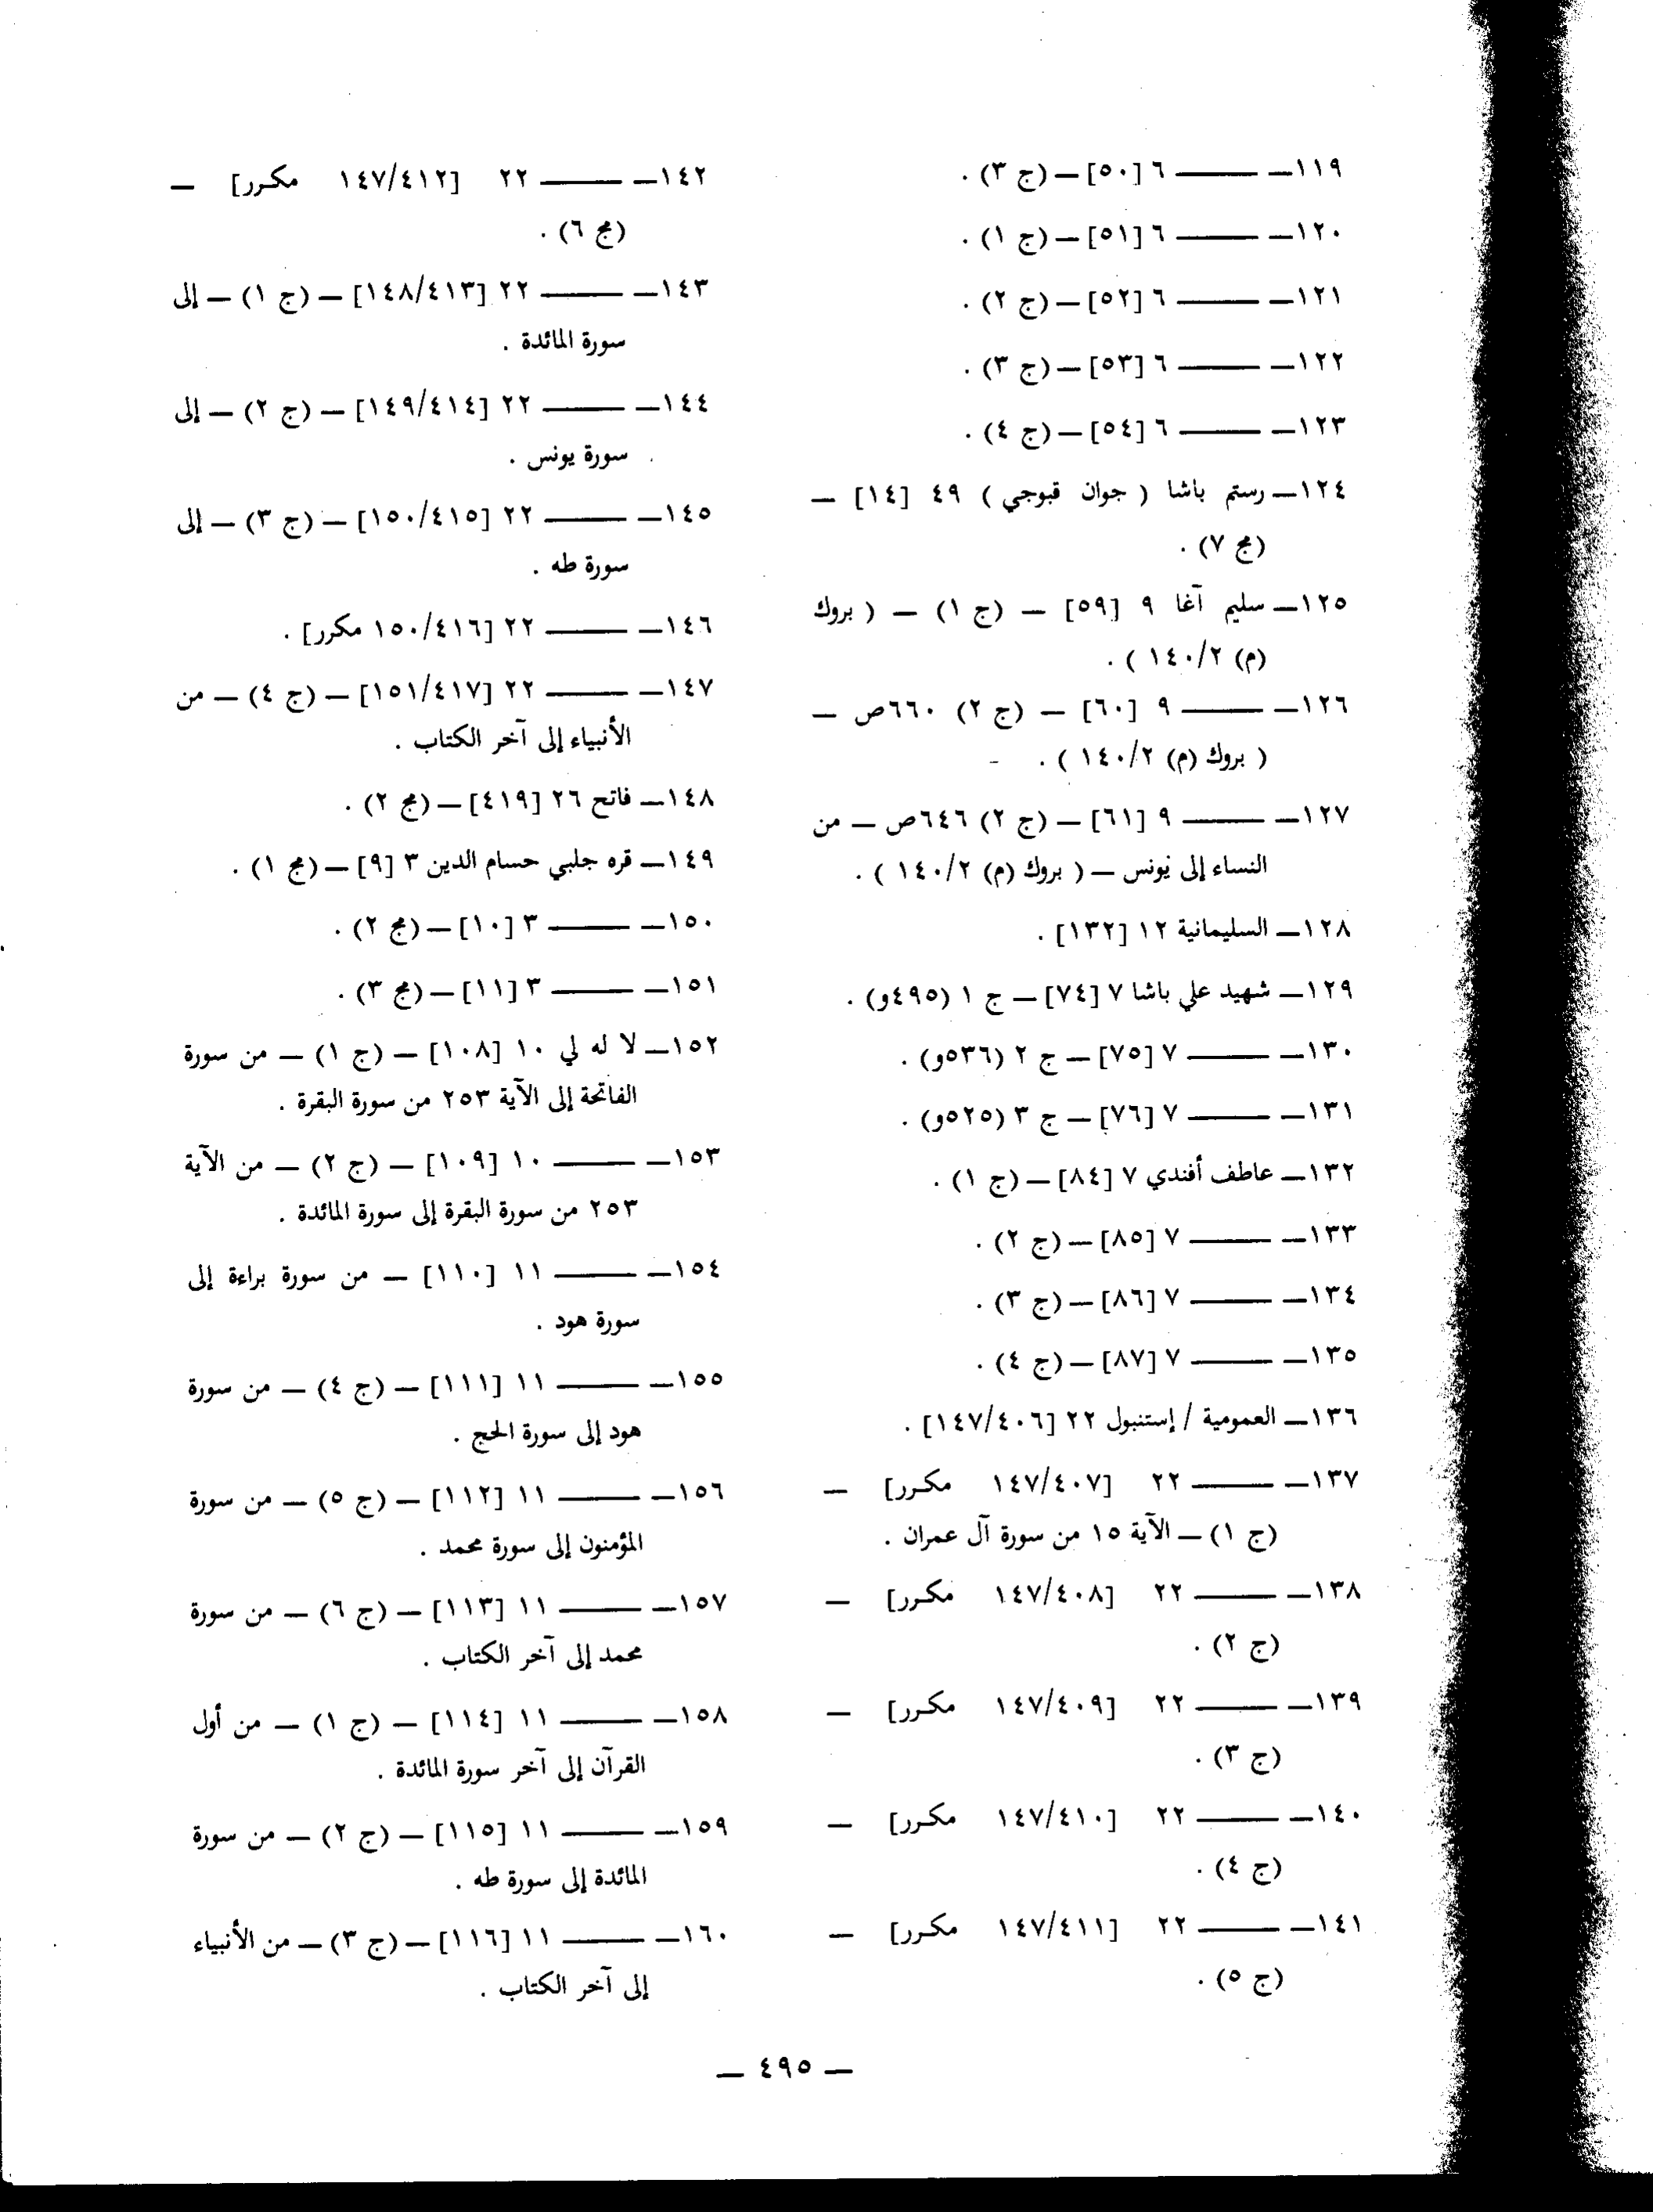 ١١٩ــ ـــــــ ٦ [٥٠] ــ (ج ٣) .
١٢٠ــ ـــــــ ٦ [٥١] ــ (ج ١) .
١٢١ــ ـــــــ ٦ [٥٢] ــ (ج ٢) .
١٢٢ــ ـــــــ ٦ [٥٣] ــ (ج ٣) .
١٢٣ــ ـــــــ ٦ [٥٤] ــ (ج ٤) .
١٢٤ــ رستم باشا ( جوان قبوجي ) ٤٩ [١٤] ــ
(مج ٧) .
١٢٥ــ سليم آغا ٩ [٥٩] ــ (ج ١) ــ ( بروك
(م) ١٤٠/٢ ) .
١٢٦ــ ـــــــ ٩ [٦٠] ــ (ج ٢) ٦٦٠ص ــ
( بروك (م) ١٤٠/٢ ) .
١٢٧ــ ـــــــ ٩ [٦١] ــ (ج ٢) ٦٤٦ص ــ من
النساء إلى يونس ــ ( بروك (م) ١٤٠/٢ ) .
١٢٨ــ السليمانية ١٢ [١٣٢] .
١٢٩ــ شهيد علي باشا ٧ [٧٤] ــ ج ١ (٤٩٥و) .
١٣٠ــ ـــــــ ٧ [٧٥] ــ ج ٢ (٥٣٦و) .
١٣١ــ ـــــــ ٧ [٧٦] ــ ج ٣ (٥٢٥و) .
١٣٢ــ عاطف أفندي ٧ [٨٤] ــ (ج ١) .
١٣٣ــ ـــــــ ٧ [٨٥] ــ (ج ٢) .
١٣٤ــ ـــــــ ٧ [٨٦] ــ (ج ٣) .
١٣٥ــ ـــــــ ٧ [٨٧] ــ (ج ٤) .
١٣٦ــ العمومية / إستنبول ٢٢ [١٤٧/٤٠٦] .
١٣٧ــ ـــــــ ٢٢ [١٤٧/٤٠٧ مكرر] ــ
(ج ١) ــ الآية ١٥ من سورة آل عمران .
١٣٨ــ ـــــــ ٢٢ [١٤٧/٤٠٨ مكرر] ــ
(ج ٢) .
١٣٩ــ ـــــــ ٢٢ [١٤٧/٤٠٩ مكرر] ــ
(ج ٣) .
١٤٠ــ ـــــــ ٢٢ [١٤٧/٤١٠ مكرر] ــ
(ج ٤) .
١٤١ــ ـــــــ ٢٢ [١٤٧/٤١١ مكرر] ــ
(ج ٥) .
١٤٢ــ ـــــــ ٢٢ [١٤٧/٤١٢ مكرر] ــ
(مج ٦) .
١٤٣ــ ـــــــ ٢٢ [١٤٨/٤١٣] ــ (ج ١) ــ إلى
سورة المائدة .
١٤٤ــ ـــــــ ٢٢ [١٤٩/٤١٤] ــ (ج ٢) ــ إلى
سورة يونس .
١٤٥ــ ـــــــ ٢٢ [١٥٠/٤١٥] ــ (ج ٣) ــ إلى
سورة طه .
١٤٦ــ ـــــــ ٢٢ [١٥٠/٤١٦ مكرر] .
١٤٧ــ ـــــــ ٢٢ [١٥١/٤١٧] ــ (ج ٤) ــ من
الأنبياء إلى آخر الكتاب .
١٤٨ــ فاتح ٢٦ [٤١٩] ــ (مج ٢) .
١٤٩ــ قره جلبي حسام الدين ٣ [٩] ــ (مج ١) .
١٥٠ــ ـــــــ ٣ [١٠] ــ (مج ٢) .
١٥١ــ ـــــــ ٣ [١١] ــ (مج ٣) .
١٥٢ــ لا له لي ١٠ [١٠٨] ــ (ج ١) ــ من سورة
الفاتحة إلى الآية ٢٥٣ من سورة البقرة .
١٥٣ــ ـــــــ ١٠ [١٠٩] ــ (ج ٢) ــ من الآية
٢٥٣ من سورة البقرة إلى سورة المائدة .
١٥٤ــ ـــــــ ١١ [١١٠] ــ من سورة براءة إلى
سورة هود .
١٥٥ــ ـــــــ ١١ [١١١] ــ (ج ٤) ــ من سورة
هود إلى سورة الحج .
١٥٦ــ ـــــــ ١١ [١١٢] ــ (ج ٥) ــ من سورة
المؤمنون إلى سورة محمد .
١٥٧ــ ـــــــ ١١ [١١٣] ــ (ج ٦) ــ من سورة
محمد إلى آخر الكتاب .
١٥٨ــ ـــــــ ١١ [١١٤] ــ (ج ١) ــ من أول
القرآن إلى آخر سورة المائدة .
١٥٩ــ ـــــــ ١١ [١١٥] ــ (ج ٢) ــ من سورة
المائدة إلى سورة طه .
١٦٠ــ ـــــــ ١١ [١١٦] ــ (ج ٣) ــ من الأنبياء
إلى آخر الكتاب .
ــ ٤٩٥ ــ